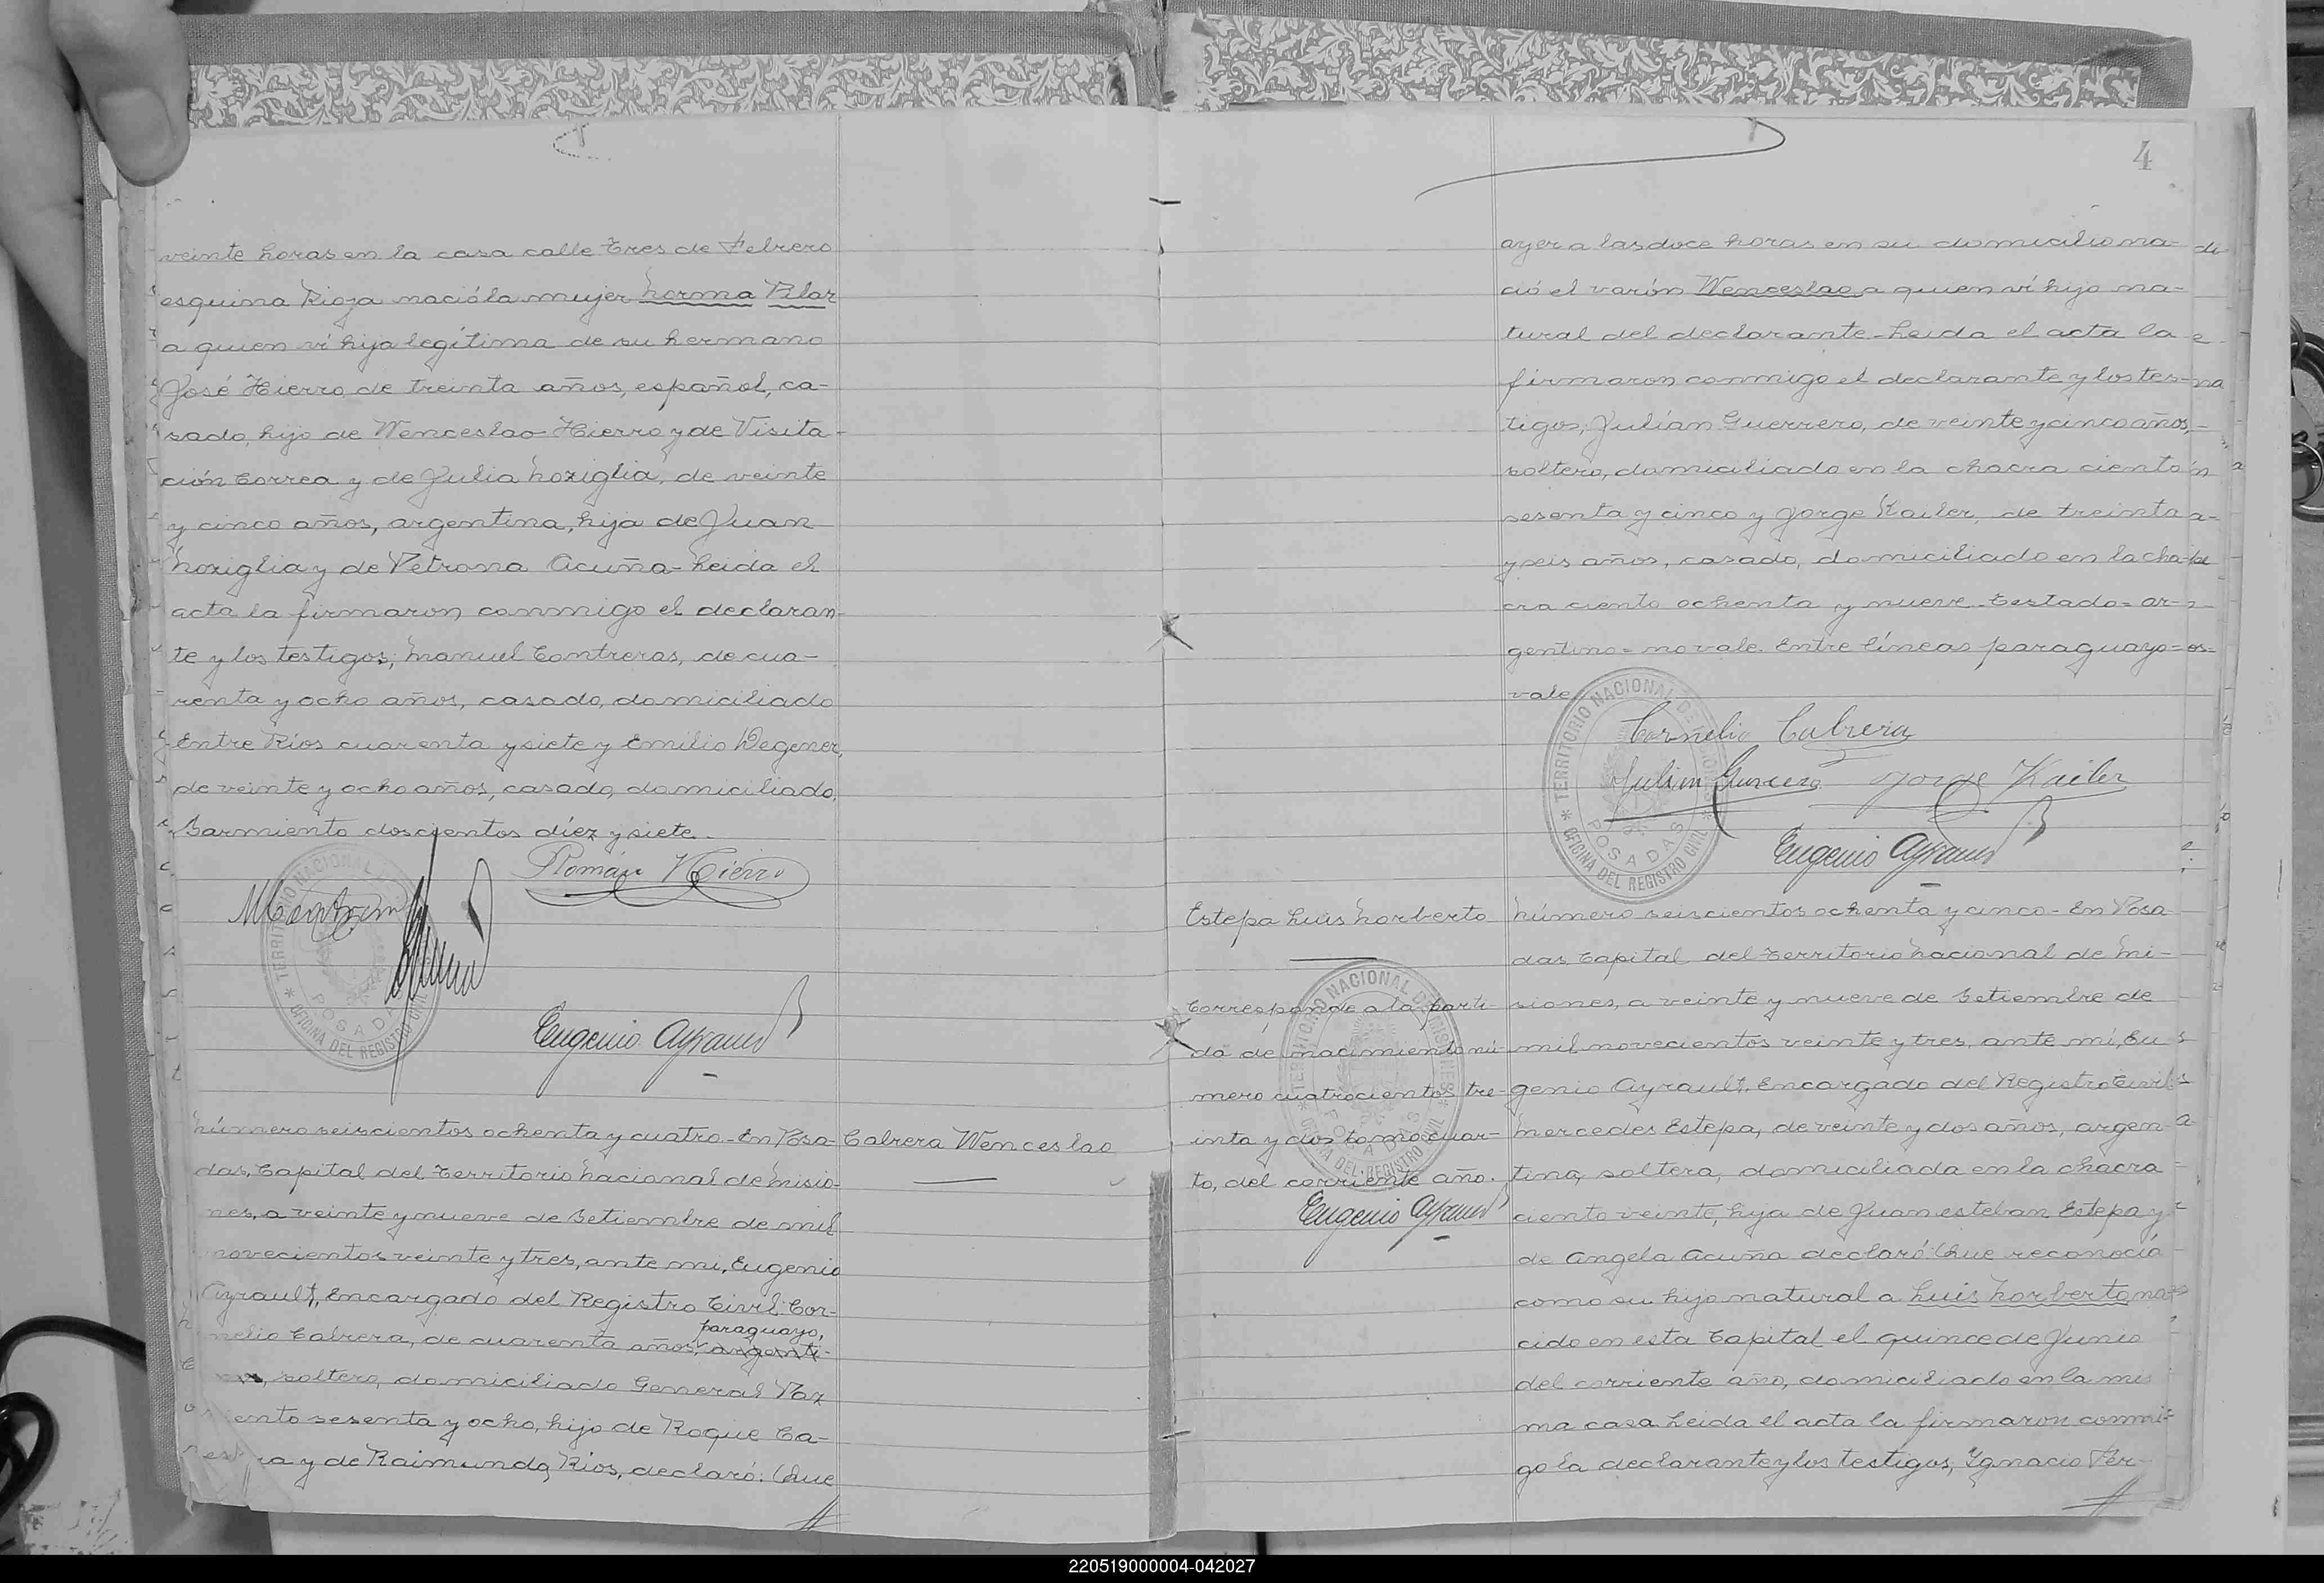 veinte horas en la casa calle Tres de Febrero
esquina Rioja nació la mujer Norma Pilar
a quien ví hija legítima de su hermano
José Hierro, de treinta años, español, ca-
sado, hijo de Wenceslao Hierro y de Visita-
ción Correa y de Julia Noziglia, de veinte
y cinco años, argentina, hija de Juan
Noziglia y de Petrona Acuña - Leida el
acta la firmaron conmigo el declaran-
te y los testigos; Manuel Contreras, de cua-
renta y ocho años, casado, domiciliado
Entre Ríos cuarenta y siete y Emilio Degener,
de veinte y ocho años, casado, domiciliado,
Sarmiento doscientos díez y siete.
Román Hierro
Eugenio Ayrault
TERRITORIO NACIONAL DE MISIONES
POSADAS
OFICINA DEL REGISTRO CIVIL
Número seiscientos ochenta y cuatro - En Posa-
das, Capital del Territorio Nacional de Misio-
nes, a veinte y nueve de Setiembre de mil
novecientos veinte y tres, ante mi, Eugenio
Ayrault, Encargado del Registro Civil: Cor-
paraguayo,
nelio Cabrera, de cuarenta años, argenti-
soltero, domiciliado General Paz
ciento sesenta y ocho, hijo de Roque Ca-
y de Raimunda Rios, declaró: Que
Cabrera Wenceslao
4
ayer a las doce horas en su domicilio na-
ció el varón Wenceslao a quien ví hijo na-
tural del declarante - Leida el acta la
firmaron conmigo el declarante y los tes-
tigos, Julián Guerrero, de veinte y cinco años,
soltero, domiciliado en la chacra ciento
sesenta y cinco y Jorge Kailer, de treinta
y seis años, casado, domiciliado en la cha-
cra ciento ochenta y nueve. Testado = ar-
gentino = no vale. Entre líneas paraguayo =
vale
Cornelio Cabrera
Julian Guerrero Jorge Kailer
Eugenio Ayrault
TERRITORIO NACIONAL DE MISIONES
POSADAS
OFICINA DEL REGISTRO CIVIL
Estepa Luis Norberto
Corresponde a la parti-
da de nacimiento nú-
mero cuatrocientos tre-
inta y dos tomo cuar-
to, del corriente año.
Eugenio Ayrault
TERRITORIO NACIONAL DE MISIONES
POSADAS
OFICINA DEL REGISTRO CIVIL
Número seiscientos ochenta y cinco - En Posa
das, Capital del Territorio Nacional de Mi-
siones, a veinte y nueve de Setiembre de
mil novecientos veinte y tres, ante mi, Eu
genio Ayrault, Encargado del Registro Civil:
Mercedes Estepa, de veinte y dos años, argen
tina, soltera, domiciliada en la chacra
ciento veinte, hija de Juan esteban Estepa y
de Angela Acuña declaró: Que reconocía
como su hijo natural a Luis Norberto na
cido en esta Capital el quince de Junio
del corriente año, domiciliado en la mis
ma casa. Leida el acta la firmaron conmi-
go la declarante y los testigos, Ygnacio Fer-
220519000004-042027